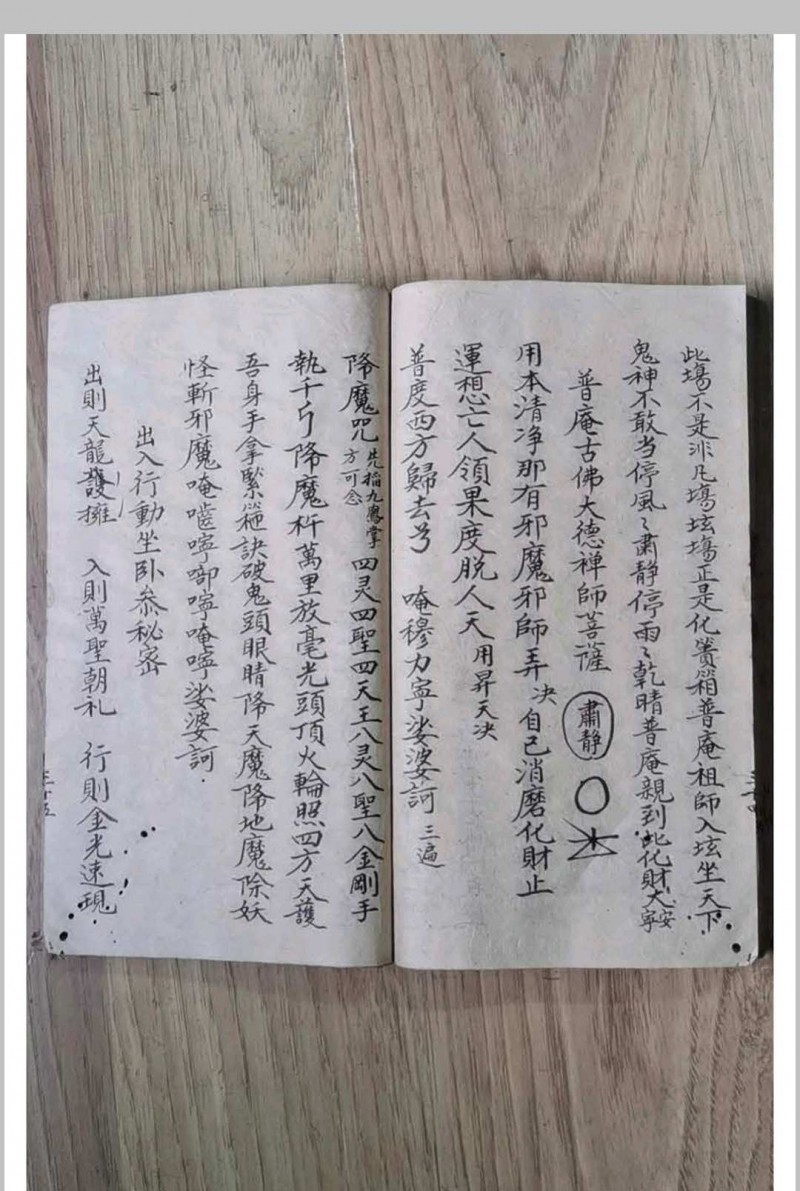 此塲不是非凡塲垓塲正是化賫箱普庵祖師入垓坐天下
鬼神不敢当停風〻肅静停雨〻乾晴普庵親到此化財大安寧
普庵古佛大德禅師菩薩 肅静
用本清净那有邪魔邪師弄决自己消磨化財止
運想亡人領果度脱人天用昇天决
普度西方歸去 唵穆力寧娑婆訶三遍
降魔咒先掐九鳳掌方可念 四灵四聖四天王八灵八聖八金剛手
執千斤降魔杵萬里放毫光頭頂火輪照四方天護
吾身手拿緊箍訣破鬼頭眼睛降天魔降地魔除妖
怪斬邪魔唵嚙嚀唧嚀唵嚀娑婆訶
出入行動坐卧叅秘密
出則天龍護擁 入則萬聖朝礼 行則金光速現
三十五